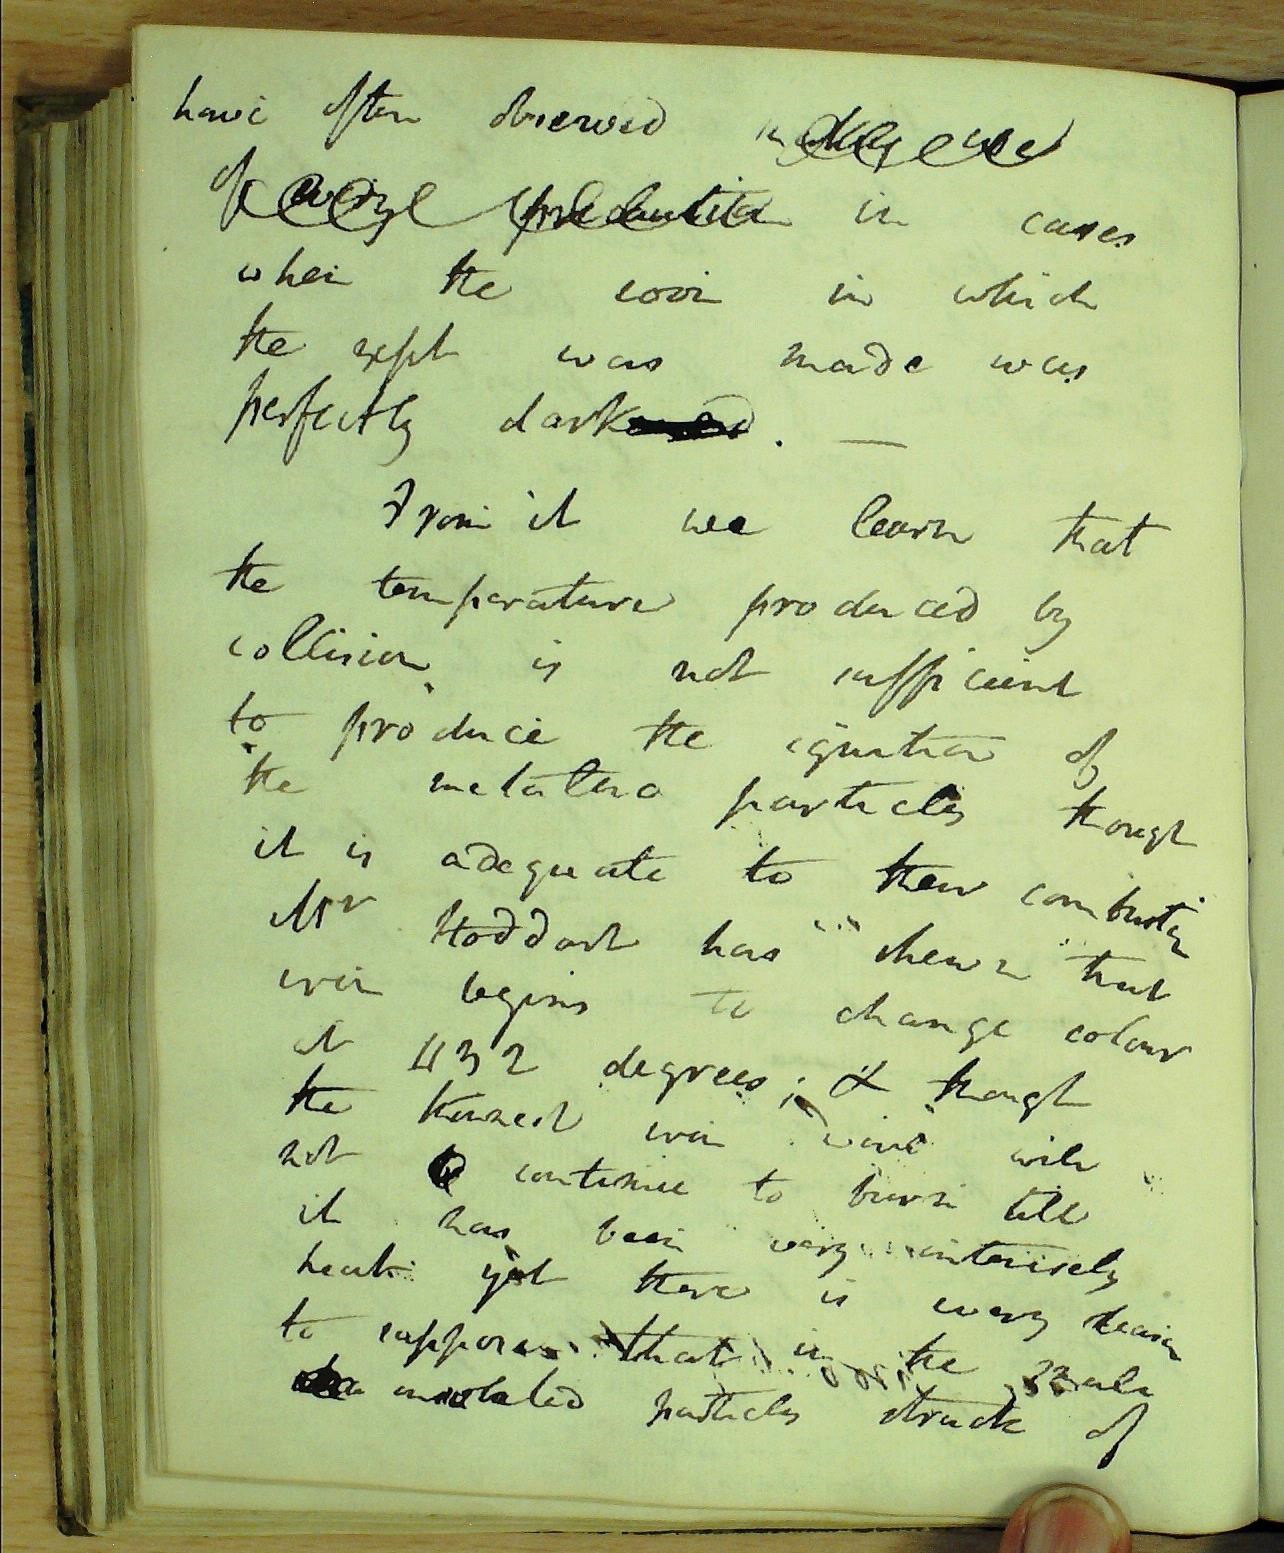 have often observed
of in cases
when the room in which
the expt was made was
perfectly dark. —
From it we learn that
the temperature produced by
collision, is not sufficient
to produce the ignition of
the metallic particles though
it is adequate to their combustion
Mr Stoddart has shewn that
iron begins to change colour
at 432 degrees; & though
the thinnest iron wire will
not continue to burn till
it has been very intensely
heated yet there is every reason
to suppose that in the small
insolated particles struck off